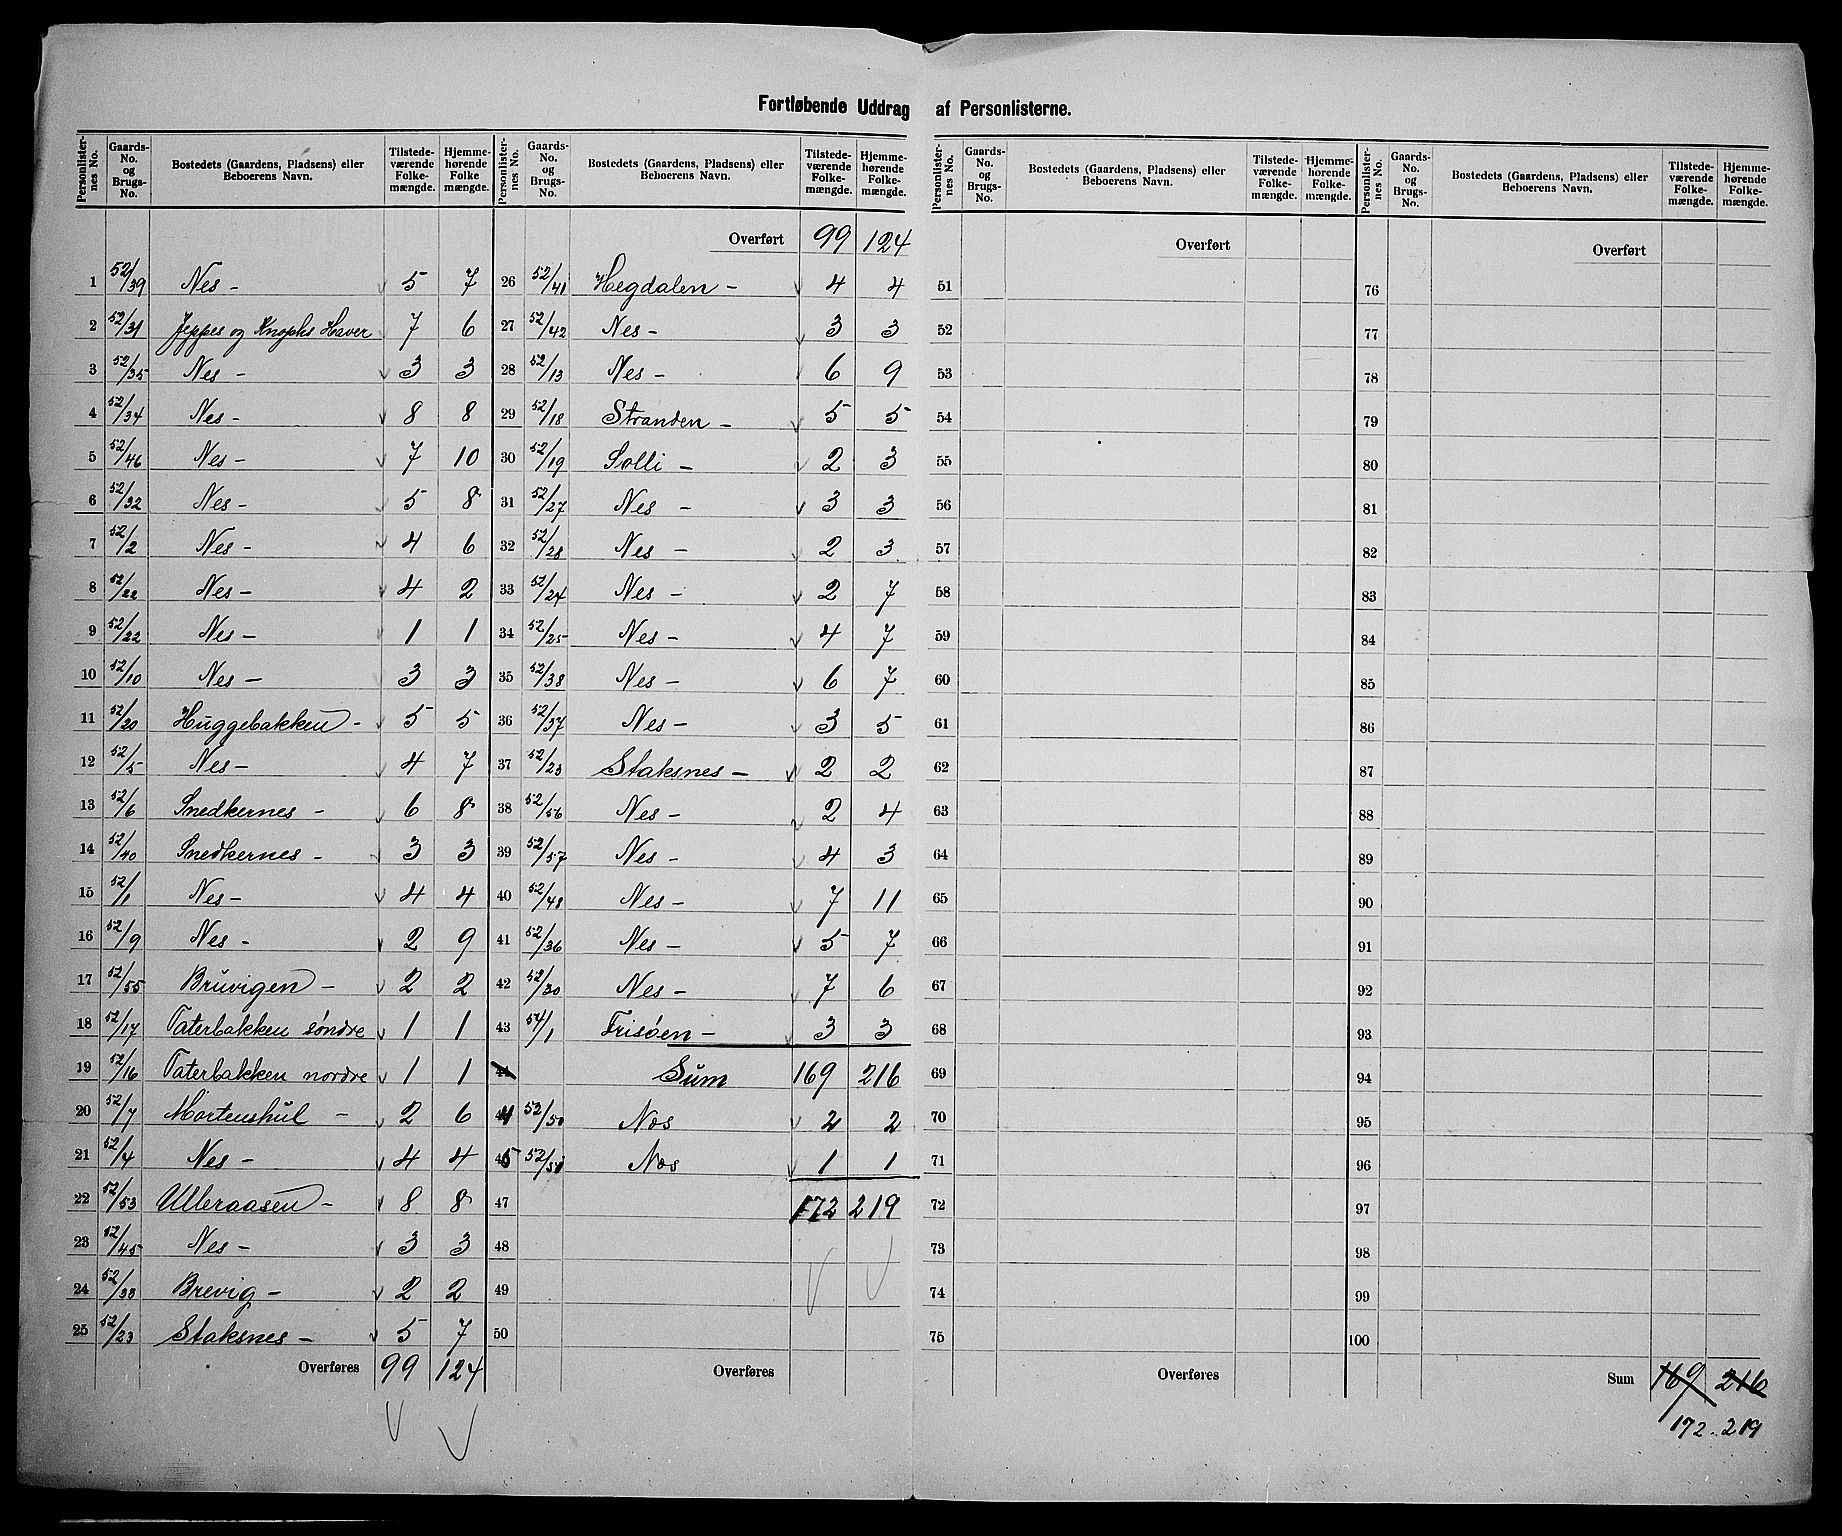 Fortløbende Uddrag af Personlisterne.
Personlisternes No. | Gaards-No. og Brugs-No. | Bostedets (Gaardens, Pladsens) eller Beboerens Navn. | Tilstedeværende Folkemængde. | Hjemmehørende Folke mængde.
1 | 52/39 | Nes - | 5 | 7
2 | 52/31 | Jeppes og Knophs Haver | 7 | 6
3 | 52/35 | Nes - | 3 | 3
4 | 52/34 | Nes - | 8 | 8
5 | 52/46 | Nes - | 7 | 10
6 | 52/32 | Nes - | 5 | 8
7 | 52/2 | Nes - | 4 | 6
8 | 52/22 | Nes - | 4 | 2
9 | 52/22 | Nes - | 1 | 1
10 | 52/10 | Nes - | 3 | 3
11 | 52/20 | Huggebakken - | 5 | 5
12 | 52/5 | Nes - | 4 | 7
13 | 52/6 | Snedkernes - | 6 | 8
14 | 52/40 | Snedkernes - | 3 | 3
15 | 52/1 | Nes - | 4 | 4
16 | 52/9 | Nes - | 2 | 9
17 | 52/55 | Bruvigen - | 2 | 2
18 | 52/17 | Taterbakken søndre | 1 | 1
19 | 52/16 | Taterbakken nordre | 1 | 1
20 | 52/7 | Mortenshul - | 2 | 6
21 | 52/4 | Nes - | 4 | 4
22 | 52/53 | Ulleraasen - | 8 | 8
23 | 52/45 | Nes - | 3 | 3
24 | 52/33 | Brevig - | 2 | 2
25 | 52/23 | Staksnes - | 5 | 7
Overføres 99 | 124
Personlisternes No. | Gaards-No. og Brugs-No. | Bostedets (Gaardens, Pladsens) eller Beboerens Navn. | Tilstedeværende Folkemængde. | Hjemmehørende Folkemængde.
Overført 99 | 124
26 | 52/41 | Hegdalen - | 4 | 4
27 | 52/42 | Nes - | 3 | 3
28 | 52/13 | Nes - | 6 | 9
29 | 52/18 | Stranden - | 5 | 5
30 | 52/19 | Solli - | 2 | 3
31 | 52/27 | Nes - | 3 | 3
32 | 52/28 | Nes - | 2 | 3
33 | 52/24 | Nes - | 2 | 7
34 | 52/25 | Nes - | 4 | 7
35 | 52/38 | Nes - | 6 | 7
36 | 52/37 | Nes - | 3 | 5
37 | 52/23 | Staksnes - | 2 | 2
38 | 52/56 | Nes - | 2 | 4
39 | 52/57 | Nes - | 4 | 3
40 | 52/48 | Nes - | 7 | 11
41 | 52/36 | Nes - | 5 | 7
42 | 52/30 | Nes - | 7 | 6
43 | 54/1 | Frisøen - | 3 | 3
44 | Sum | 169 | 216
44 | 52/50 | Nes | 2 | 2
45 | 52/51 | Nes | 1 | 1
47 | 172 | 219
48
49
50
Overføres
Personlisternes No. | Gaards-No. og Brugs-No. | Bostedets (Gaardens, Pladsens) eller Beboerens Navn. | Tilstedeværende Folkemængde. | Hjemmehørende Folkemængde.
Overført
51
52
53
54
55
56
57
58
59
60
61
62
63
64
65
66
67
68
69
70
71
72
73
74
75
Overføres
Personlisternes No. | Gaards-No. og Brugs-No. | Bostedets (Gaardens, Pladsens) eller Beboerens Navn. | Tilstedeværende Folkemængde. | Hjemmehørende Folkemængde.
Overført
76
77
78
79
80
81
82
83
84
85
86
87
88
89
90
91
92
93
94
95
96
97
98
99
100
Sum 169 | 216
172 - 219